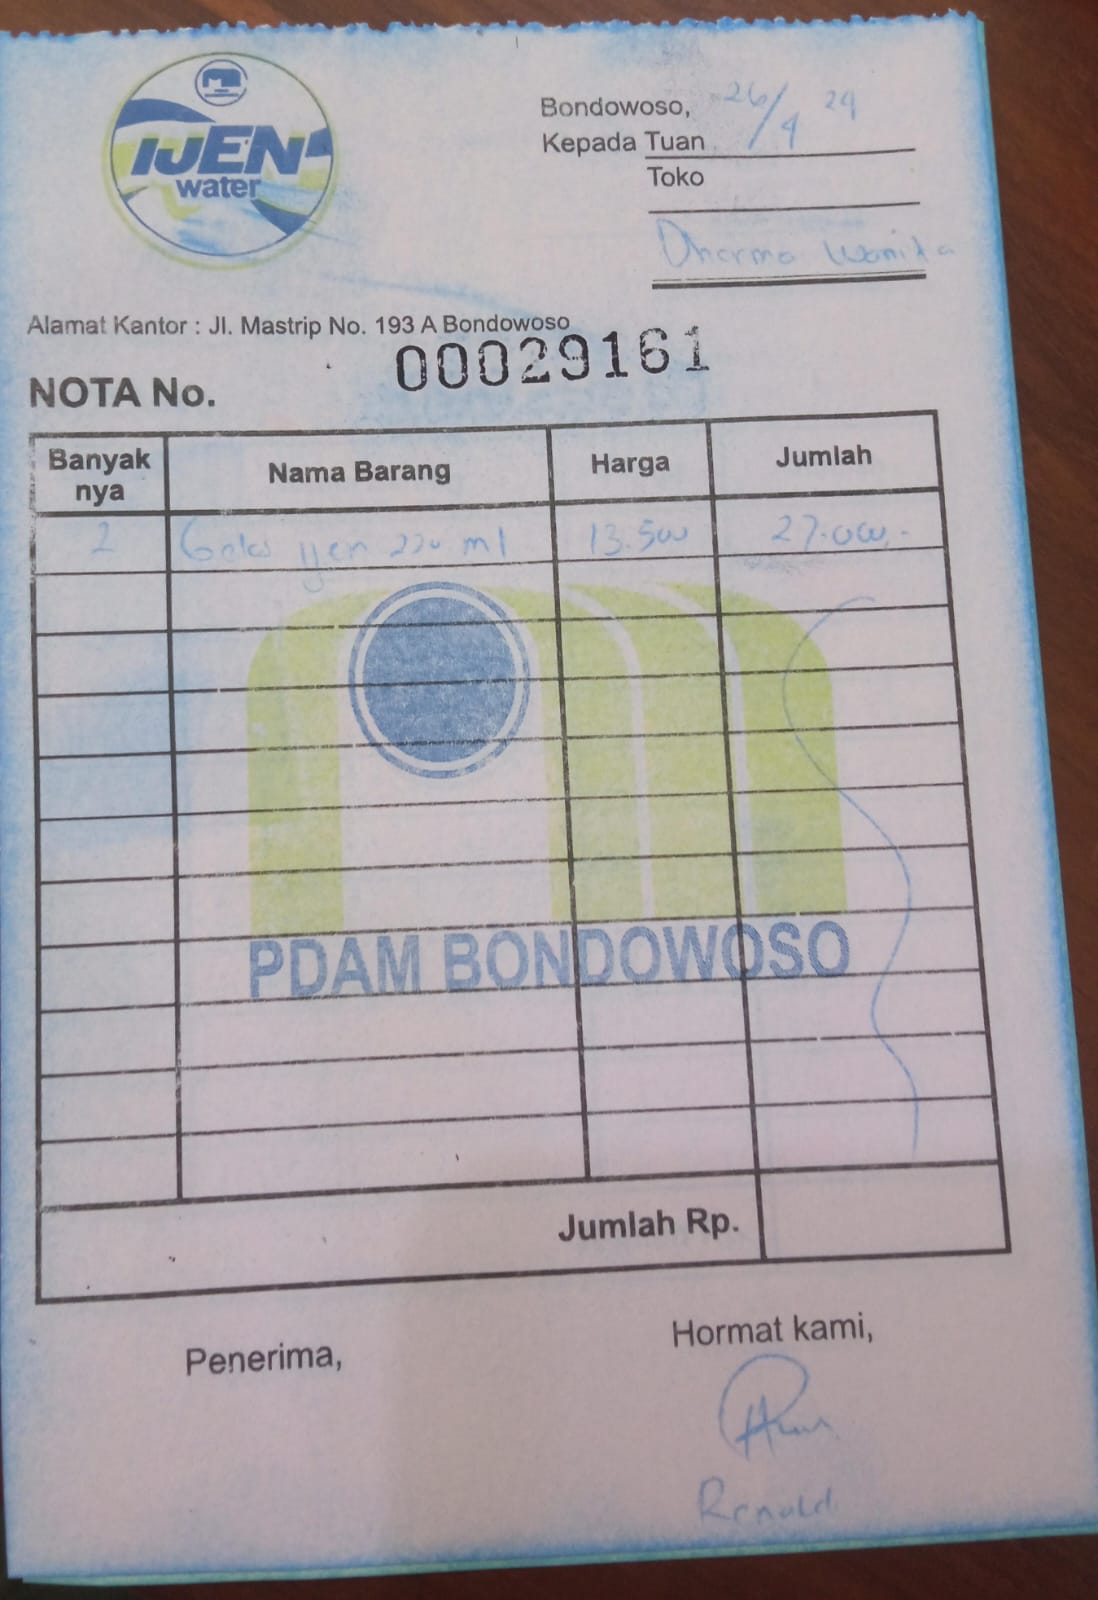 IJEN
water
Bondowoso, 26/4 24
Kepada Tuan
Toko
Dharma Wanita
Alamat Kantor : Jl. Mastrip No. 193 A Bondowoso
NOTA No. 00029161
Banyak nya Nama Barang Harga Jumlah
2 Gelas ijen 220 ml 13.500 27.000,-
PDAM BONDOWOSO
Jumlah Rp.
Penerima, Hormat kami,
Renald